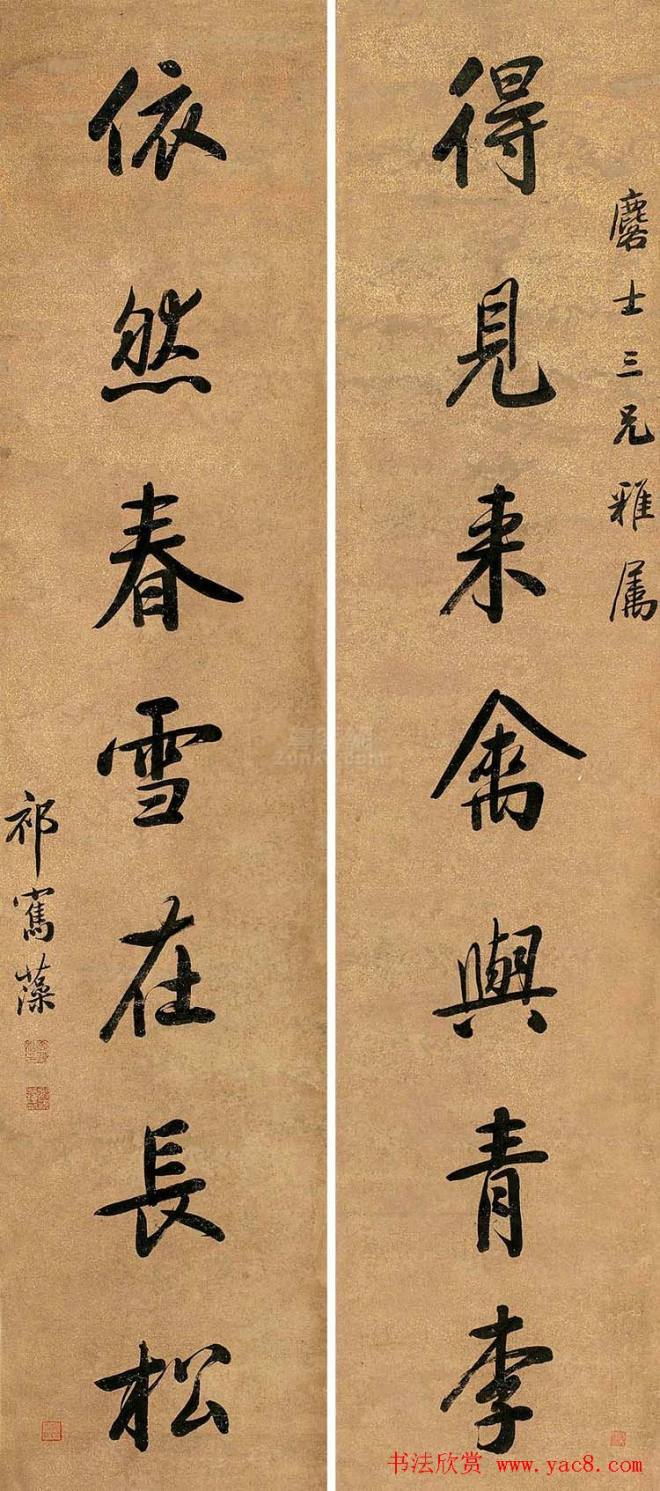 麐士三兄雅屬
得見来禽與青李
依然春雪在長松
祁寯藻
书法欣赏 www.yac8.com